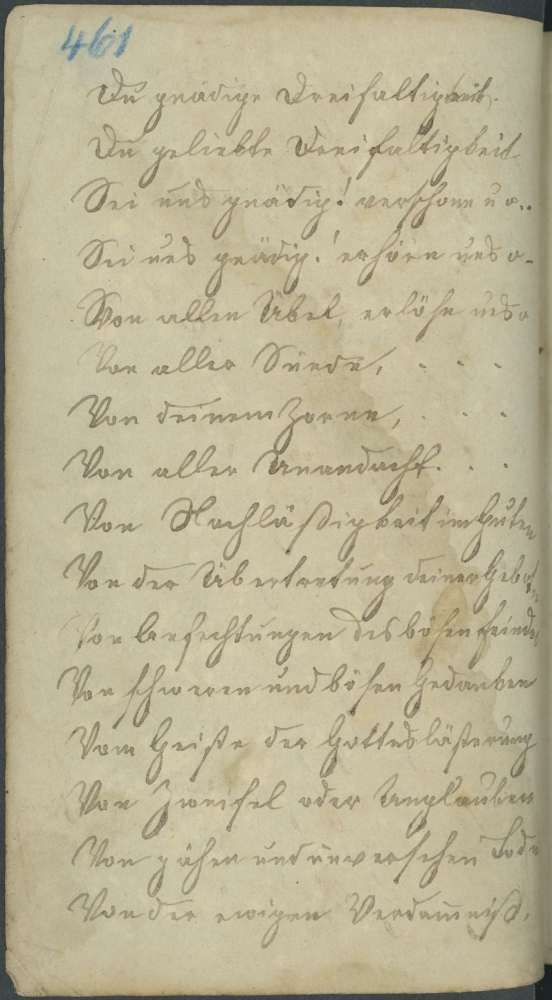 461
Du gnädige Dreifaltigkeit.
Du geliebte Dreifaltigkeit
Sei uns gnädig! verschone u o..
Sei uns gnädig! erhöre uns o-
Von allen Übel, erlöse uns o
Von aller Sünde, - - -
Von deinem Zorne, - - -
Von aller Unandacht. - -
Von Nachläßigkeit im Guten
Von der Übertretung deiner Gebote
Von Anfechtungen des bösen Feindes
Von schweren und bösen Gedanken
Vom Geiste der Gotteslästerung
Von Zweifel oder Unglauben
Von gähen und unversehen Tode
Von der ewigen Verdamniß.